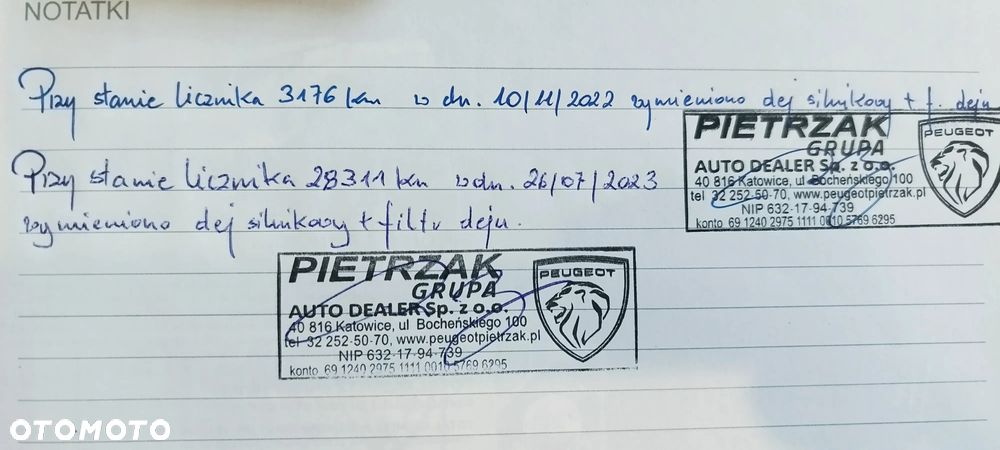 NOTATKI
Przy stanie licznika 3176 km w dn. 10/11/2022 wymieniono olej silnikowy + f. oleju
PIETRZAK
GRUPA
AUTO DEALER Sp. z o.o.
40 816 Katowice, ul Bocheńskiego 100
tel 32 252-50-70, www.peugeotpietrzak.pl
NIP 632-17-94-739
konto 69 1240 2975 1111 0010 5769 6295
PEUGEOT
Przy stanie licznika 28311 km w dn. 26/07/2023
wymieniono olej silnikowy + filtr oleju.
PIETRZAK
GRUPA
AUTO DEALER Sp. z o.o.
40 816 Katowice, ul Bocheńskiego 100
tel 32 252-50-70, www.peugeotpietrzak.pl
NIP 632-17-94-739
konto 69 1240 2975 1111 0010 5769 6295
PEUGEOT
OTOMOTO